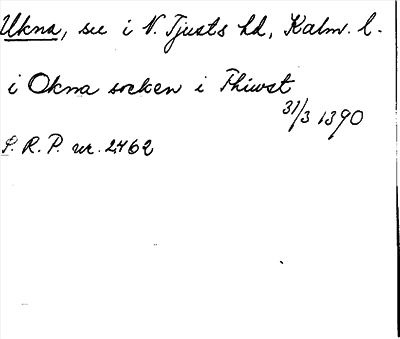 Ukna, sn i N. Tjusts hd, Kalm. l.
i Okna socken i Thiust
31/3 1390
S. R. P. nr. 2462